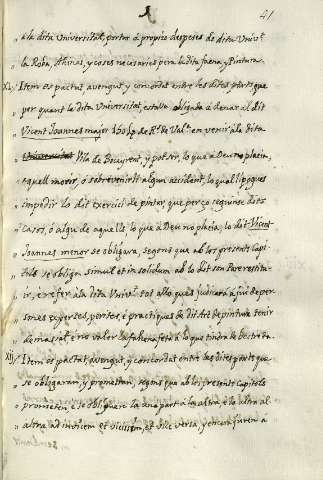 41
a la dita Universitat, portar á propies despeses de dita Univ.t
la Roba, Ahinas, y coses necesaries pera la dita faena, y Pintura
XI Item es pactat avengut, y concordat entre les dites parts que
per quant la dita Universitat, estava obligada á donar al dit
Vicent Joannes major de R.s de Val.a en venir á la dita
Universitat Vila de Bocayrent, y pot ser, lo que a Deu no placia,
aquell morir, ó sobrevenirli algun accident, lo qual li pogues
impedir lo dit exercici de pintar, que perço seguinse dits
casos, ó algu de aquells, lo que á Deu no placia, lo dit Vicent
Joannes menor se obligara, segons que ab los presents Capi
tols se obliga simul et in solidum ab lo dit son Pare restitu
ir, é refer á la dita Univ.t tot allo ques judicará á juí de per
sones expertes, peritos, é practiques de dit Art de pintura tenir
demasiat, é no valer la fahena feta á lo que tindra bestreta.
XII Item es pactat, avengut, y concordat entre les dites parts que
se obligaran, y prometran, segons que ab los presents Capitols
prometen, é se obliguen la una part á la altra é la altra al
altra ad invicem et vicissim, et vice versa, y encara juren a